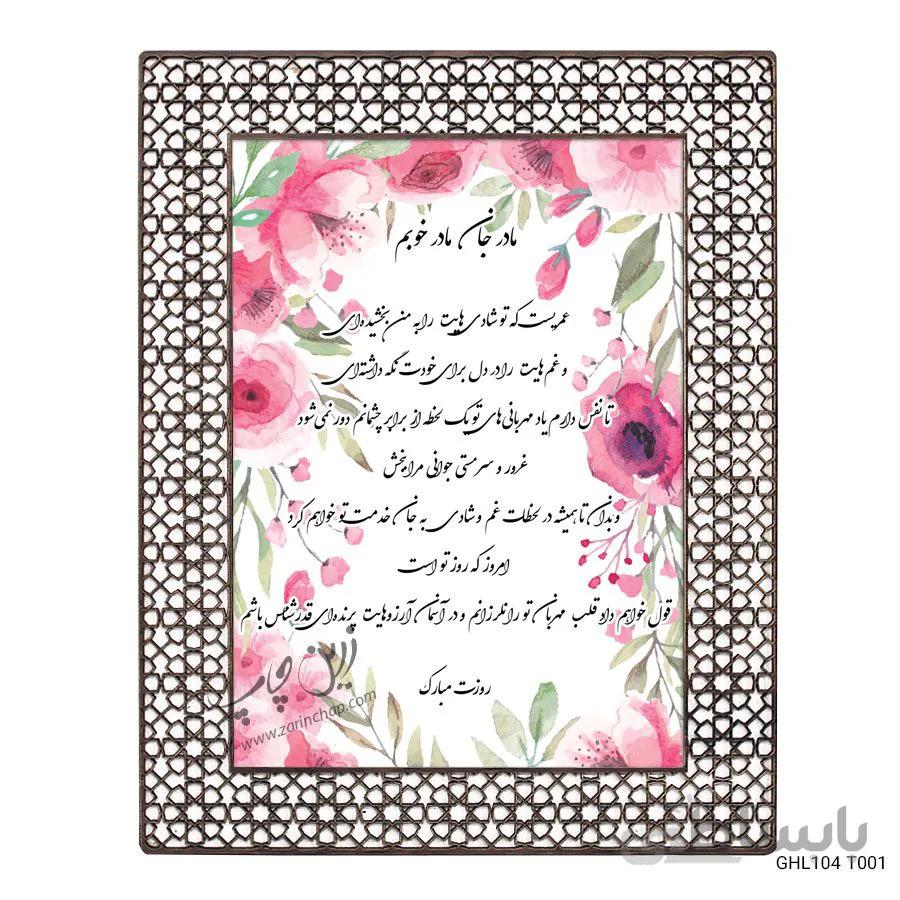 مادر جان مادر خوبم
عمریست که تو شادی هایت را به من بخشیده‌ای
و غم هایت را در دل برای خودت نگه داشته‌ای
تا نفس دارم یاد مهربانی های تو یک لحظه از برابر چشمانم دور نمی شود
غرور و سرمستی جوانی مرا ببخش
و بدان تا همیشه در لحظات غم و شادی به جان خدمت تو خواهم کرد
امروز که روز تو است
قول خواهم داد قلب مهربان تو را نلرزانم و در آسمان آرزوهایت پرنده‌ای قدرشناس باشم
روزت مبارک
زرین چاپ
www.zarinchap.com
باسلام
GHL104 T001